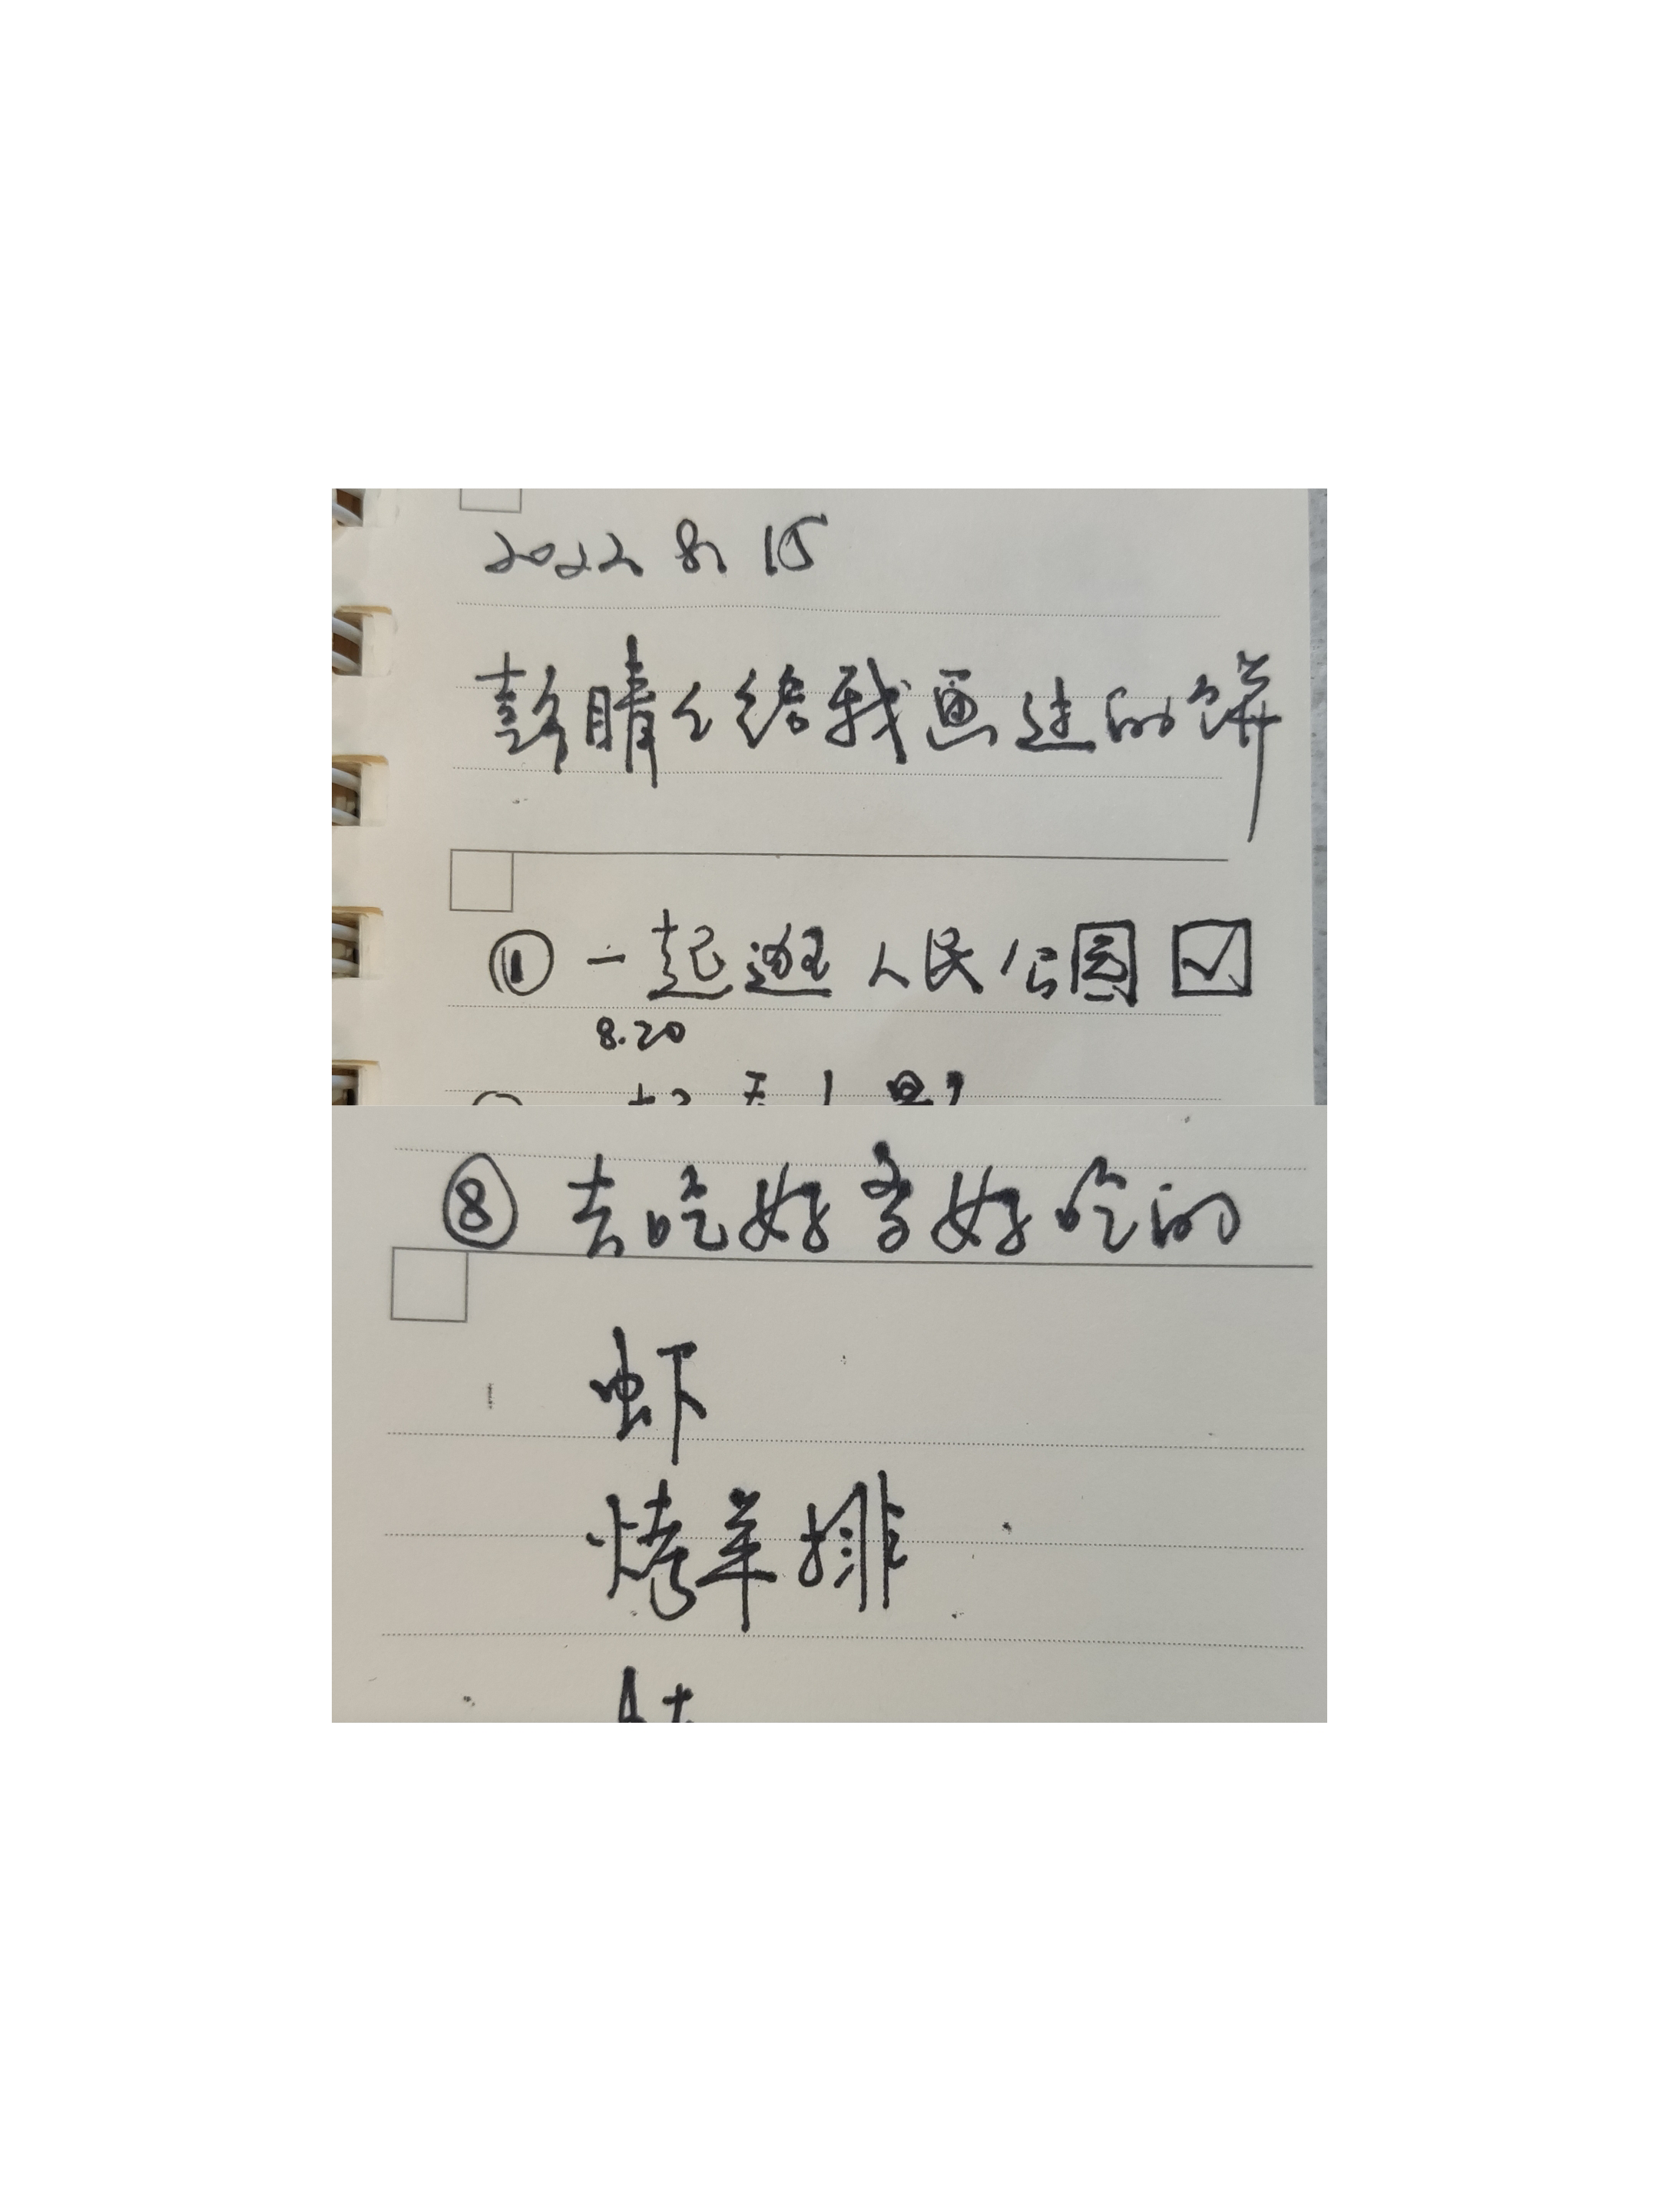 2022 8. 15
彭晴仝给我画过的饼
① 一起逛人民公园 ☑
8.20
⑧ 去吃好多好吃的
虾
烤羊排